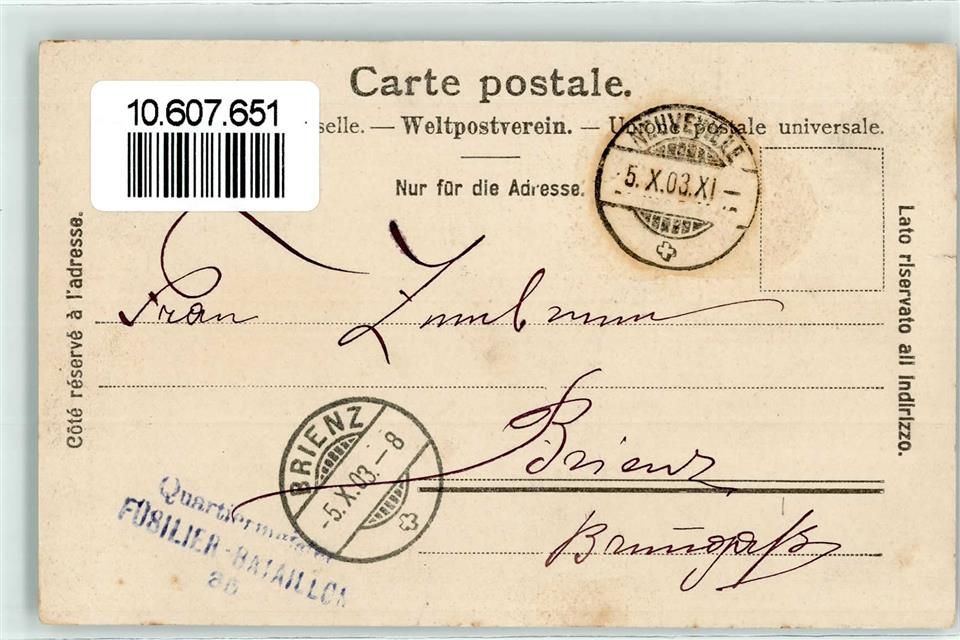 Carte postale.
10.607.651
selle. — Weltpostverein. — Unione postale universale.
Nur für die Adresse.
NEUVEVILLE
5.X.03.XI
Côté réservé à l'adresse.
Lato riservato all indirizzo.
Frau Zumbrunn
Brienz
BRIENZ
-5.X.03.-8
Quartiermeister
FÜSILIER-BATAILLON